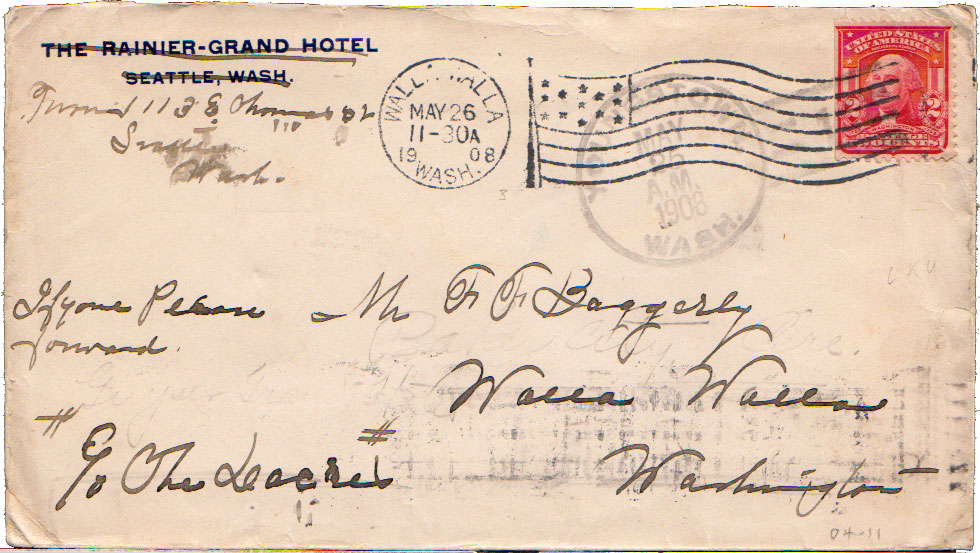 THE RAINIER-GRAND HOTEL
SEATTLE, WASH.
113 E Thomas st
Seattle
Wash.
WALLA WALLA
MAY 26
11-30A
1908
WASH.
MAY
25
A.M.
1908
WASH.
UNITED STATES
OF AMERICA
2 WASHINGTON 2
POSTAGE
TWO CENTS
If gone Please
forward.
Mr F F Baggerly
Walla Walla
Washington
C/o The
04-11